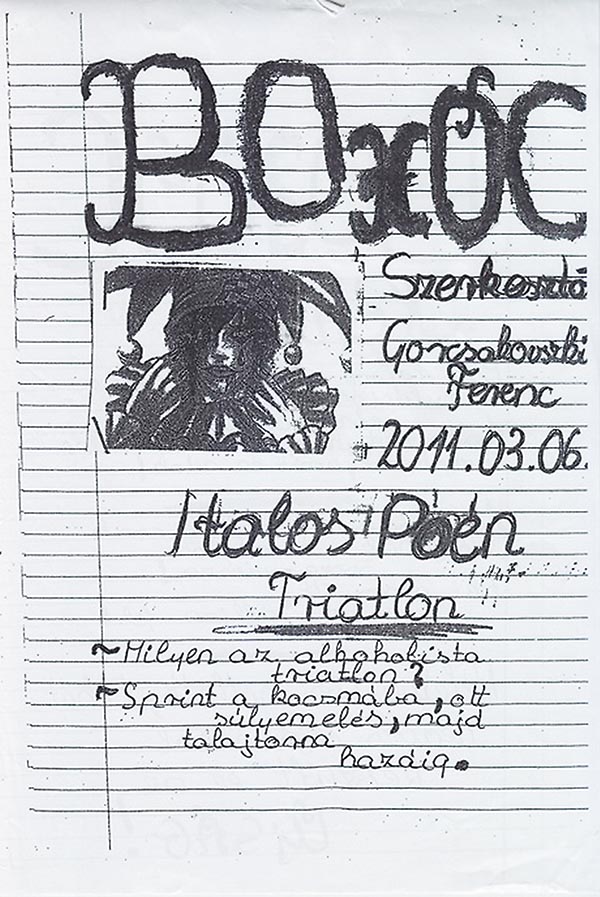 BOHÓC
Szerkesztő
Gorcsakovszki
Ferenc
2011.03.06.
Italos Poén
Triatlon
~Milyen az alkoholista
triatlon?
~Sprint a kocsmába, ott
súlyemelés, majd
talajtorna
hazáig.